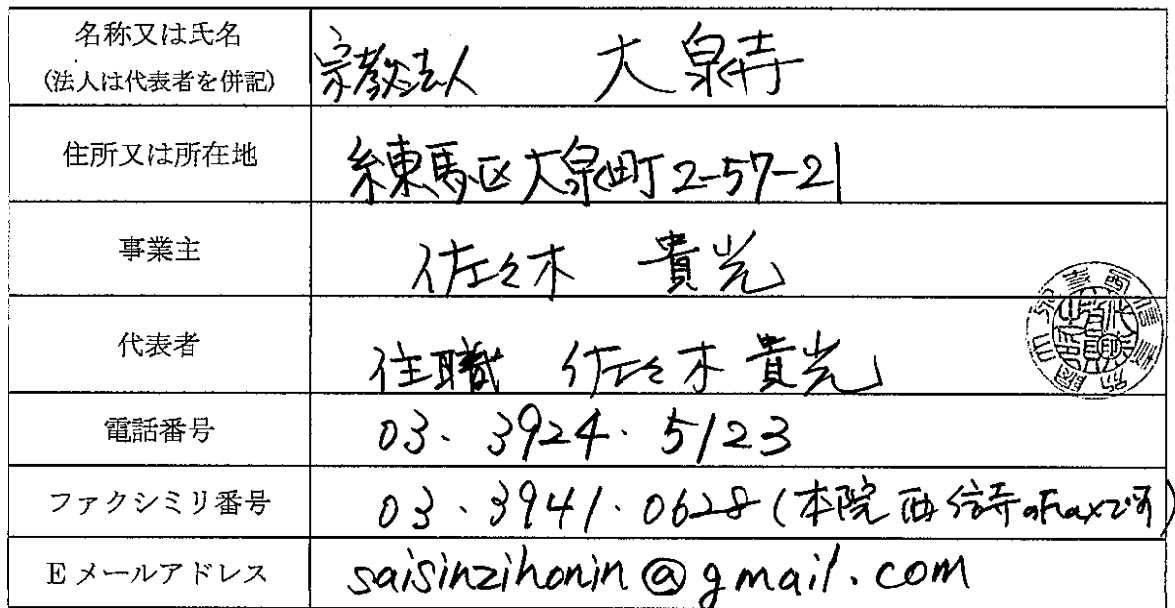 名称又は氏名
(法人は代表者を併記)
宗教法人 大泉寺
住所又は所在地
練馬区大泉町2-57-21
事業主
佐々木 貴光
代表者
住職 佐々木 貴光
電話番号
03. 3924. 5123
ファクシミリ番号
03. 3941. 0628 (本院西信寺のFaxです)
Eメールアドレス
saisinzihonin@gmail.com